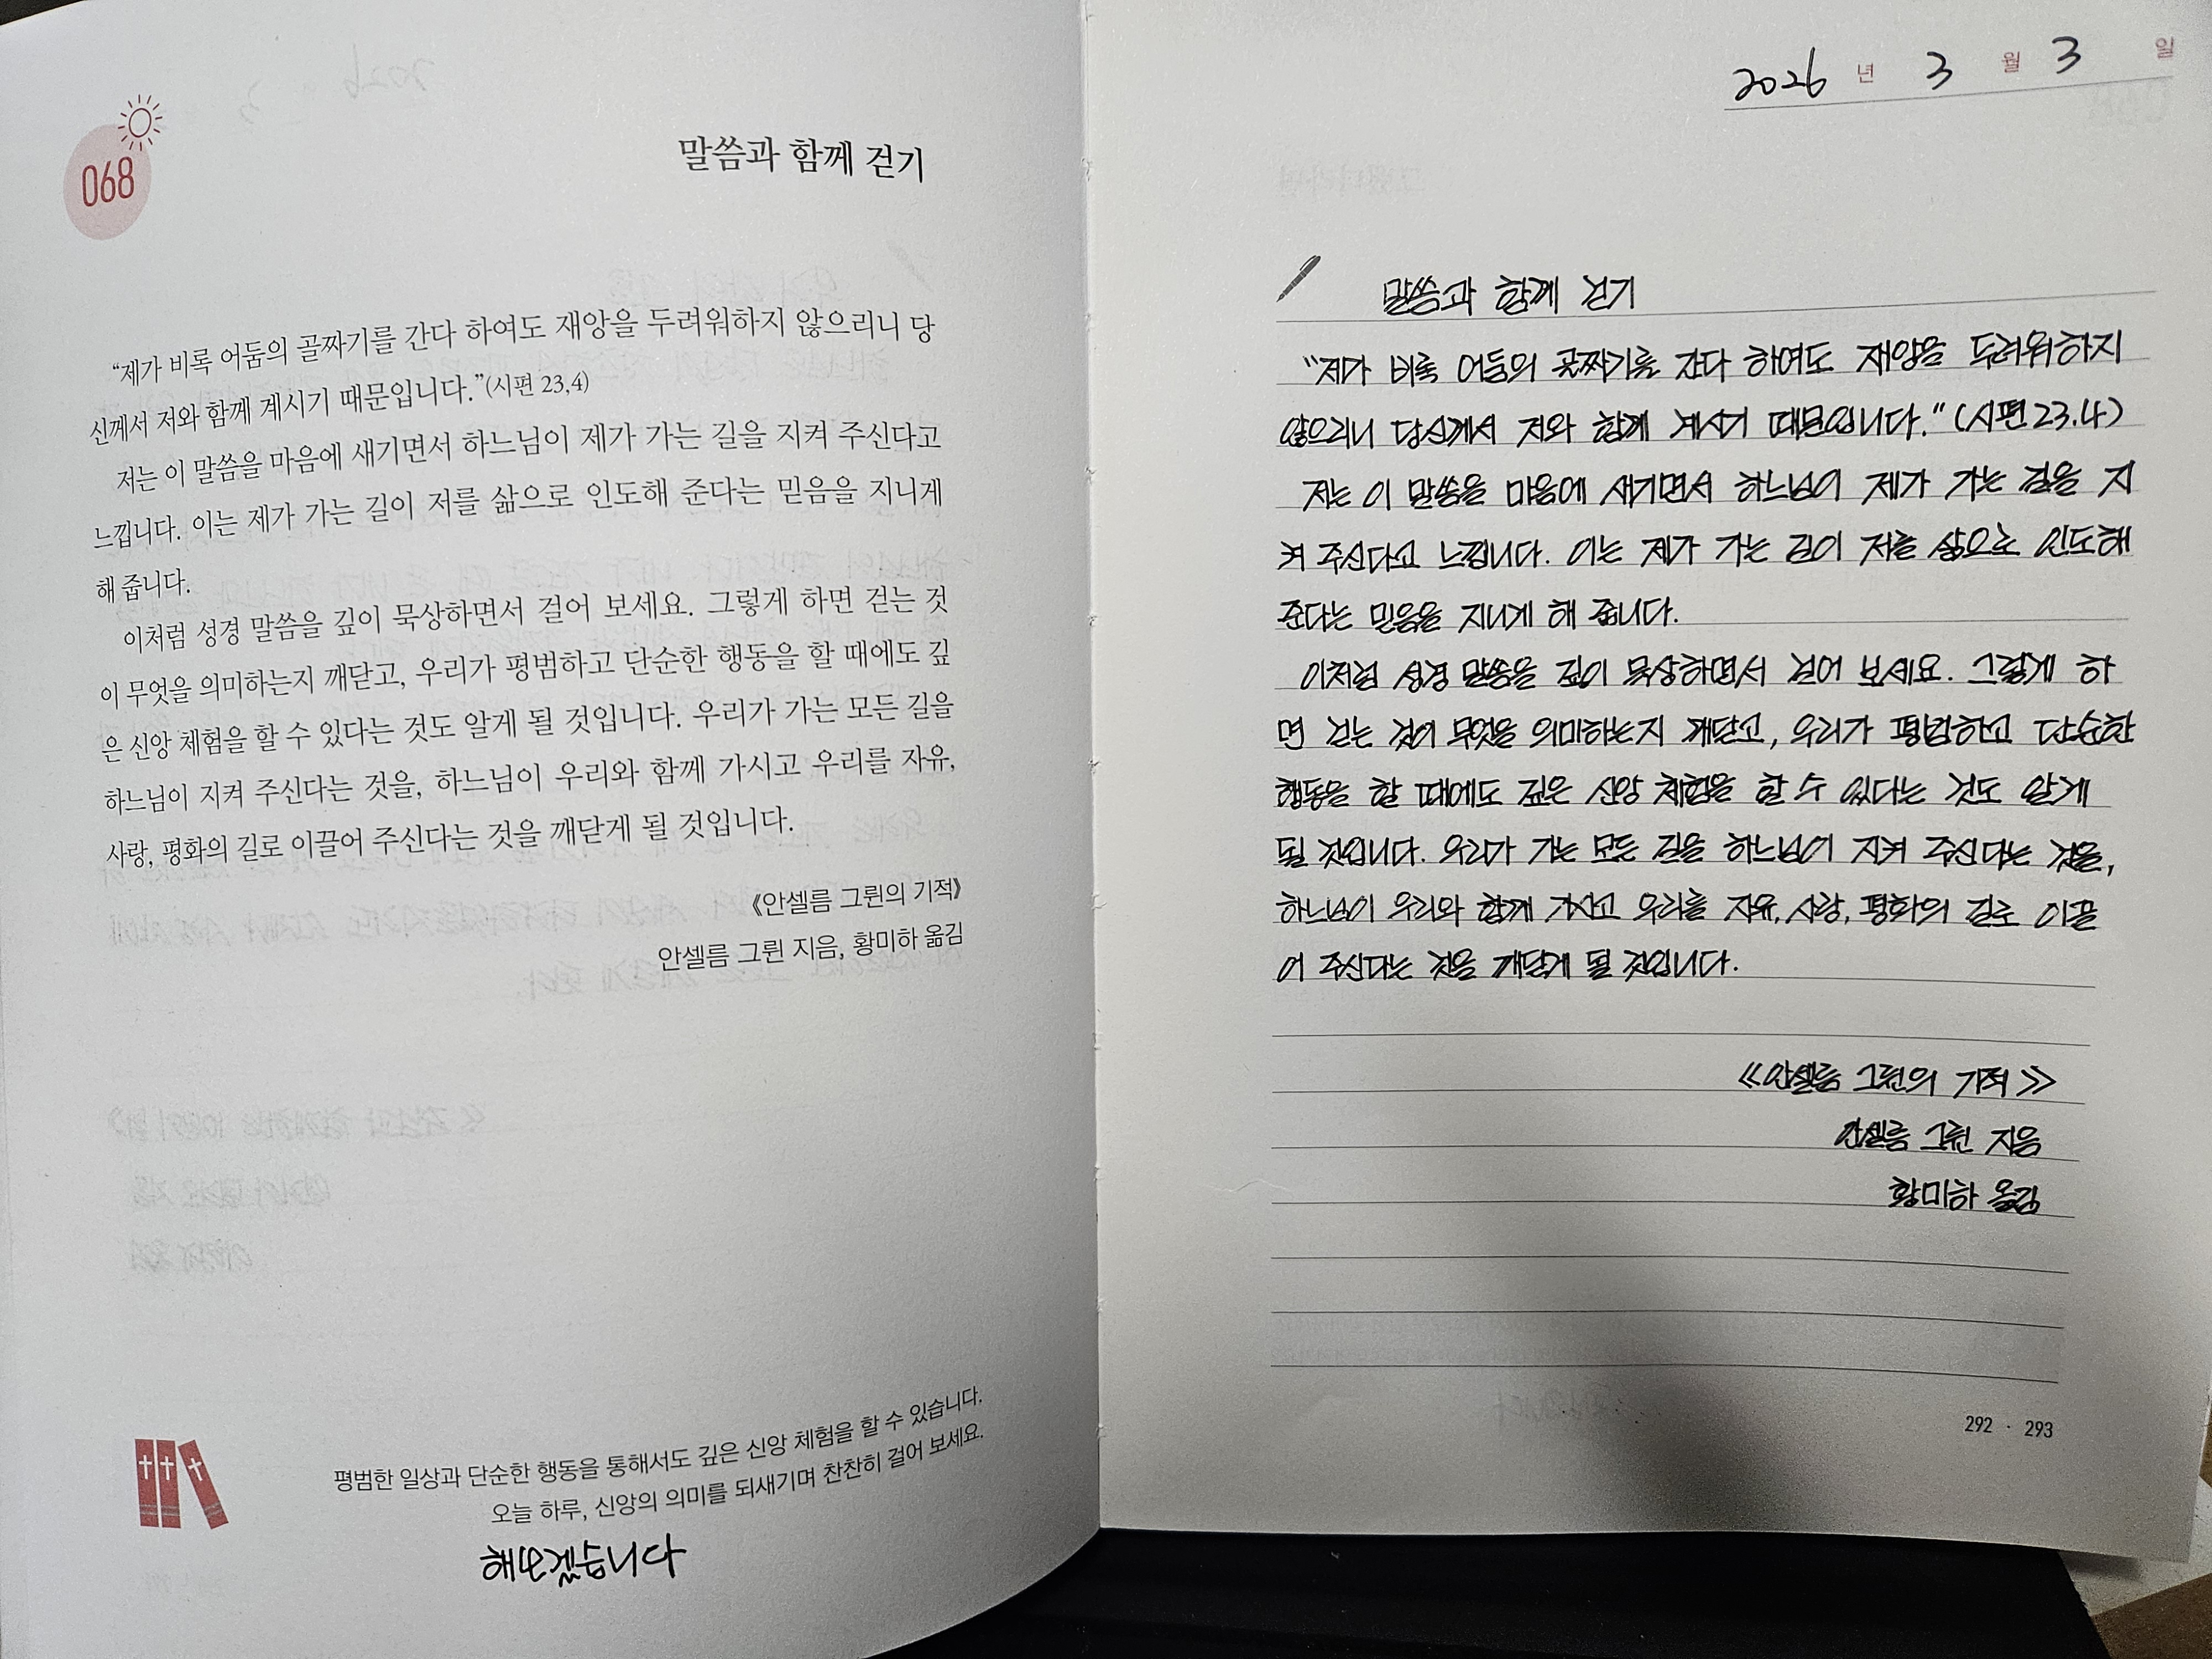 068
말씀과 함께 걷기
“제가 비록 어둠의 골짜기를 간다 하여도 재앙을 두려워하지 않으리니 당
신께서 저와 함께 계시기 때문입니다.”(시편 23,4)
저는 이 말씀을 마음에 새기면서 하느님이 제가 가는 길을 지켜 주신다고
느낍니다. 이는 제가 가는 길이 저를 삶으로 인도해 준다는 믿음을 지니게
해 줍니다.
이처럼 성경 말씀을 깊이 묵상하면서 걸어 보세요. 그렇게 하면 걷는 것
이 무엇을 의미하는지 깨닫고, 우리가 평범하고 단순한 행동을 할 때에도 깊
은 신앙 체험을 할 수 있다는 것도 알게 될 것입니다. 우리가 가는 모든 길을
하느님이 지켜 주신다는 것을, 하느님이 우리와 함께 가시고 우리를 자유,
사랑, 평화의 길로 이끌어 주신다는 것을 깨닫게 될 것입니다.
《안셀름 그륀의 기적》
안셀름 그륀 지음, 황미하 옮김
평범한 일상과 단순한 행동을 통해서도 깊은 신앙 체험을 할 수 있습니다.
오늘 하루, 신앙의 의미를 되새기며 찬찬히 걸어 보세요.
해보겠습니다
2026 년 3 월 3 일
말씀과 함께 걷기
"제가 비록 어둠의 골짜기를 간다 하여도 재앙을 두려워하지
않으리니 당신께서 저와 함께 계시기 때문입니다." (시편 23.4)
저는 이 말씀을 마음에 새기면서 하느님이 제가 가는 길을 지
켜 주신다고 느낍니다. 이는 제가 가는 길이 저를 삶으로 인도해
준다는 믿음을 지니게 해 줍니다.
이처럼 성경 말씀을 깊이 묵상하면서 걸어 보세요. 그렇게 하
면 걷는 것이 무엇을 의미하는지 깨닫고, 우리가 평범하고 단순한
행동을 할 때에도 깊은 신앙 체험을 할 수 있다는 것도 알게
될 것입니다. 우리가 가는 모든 길을 하느님이 지켜 주신다는 것을,
하느님이 우리와 함께 가시고 우리를 자유, 사랑, 평화의 길로 이끌
어 주신다는 것을 깨닫게 될 것입니다.
《안셀름 그륀의 기적》
안셀름 그륀 지음
황미하 옮김
292 · 293